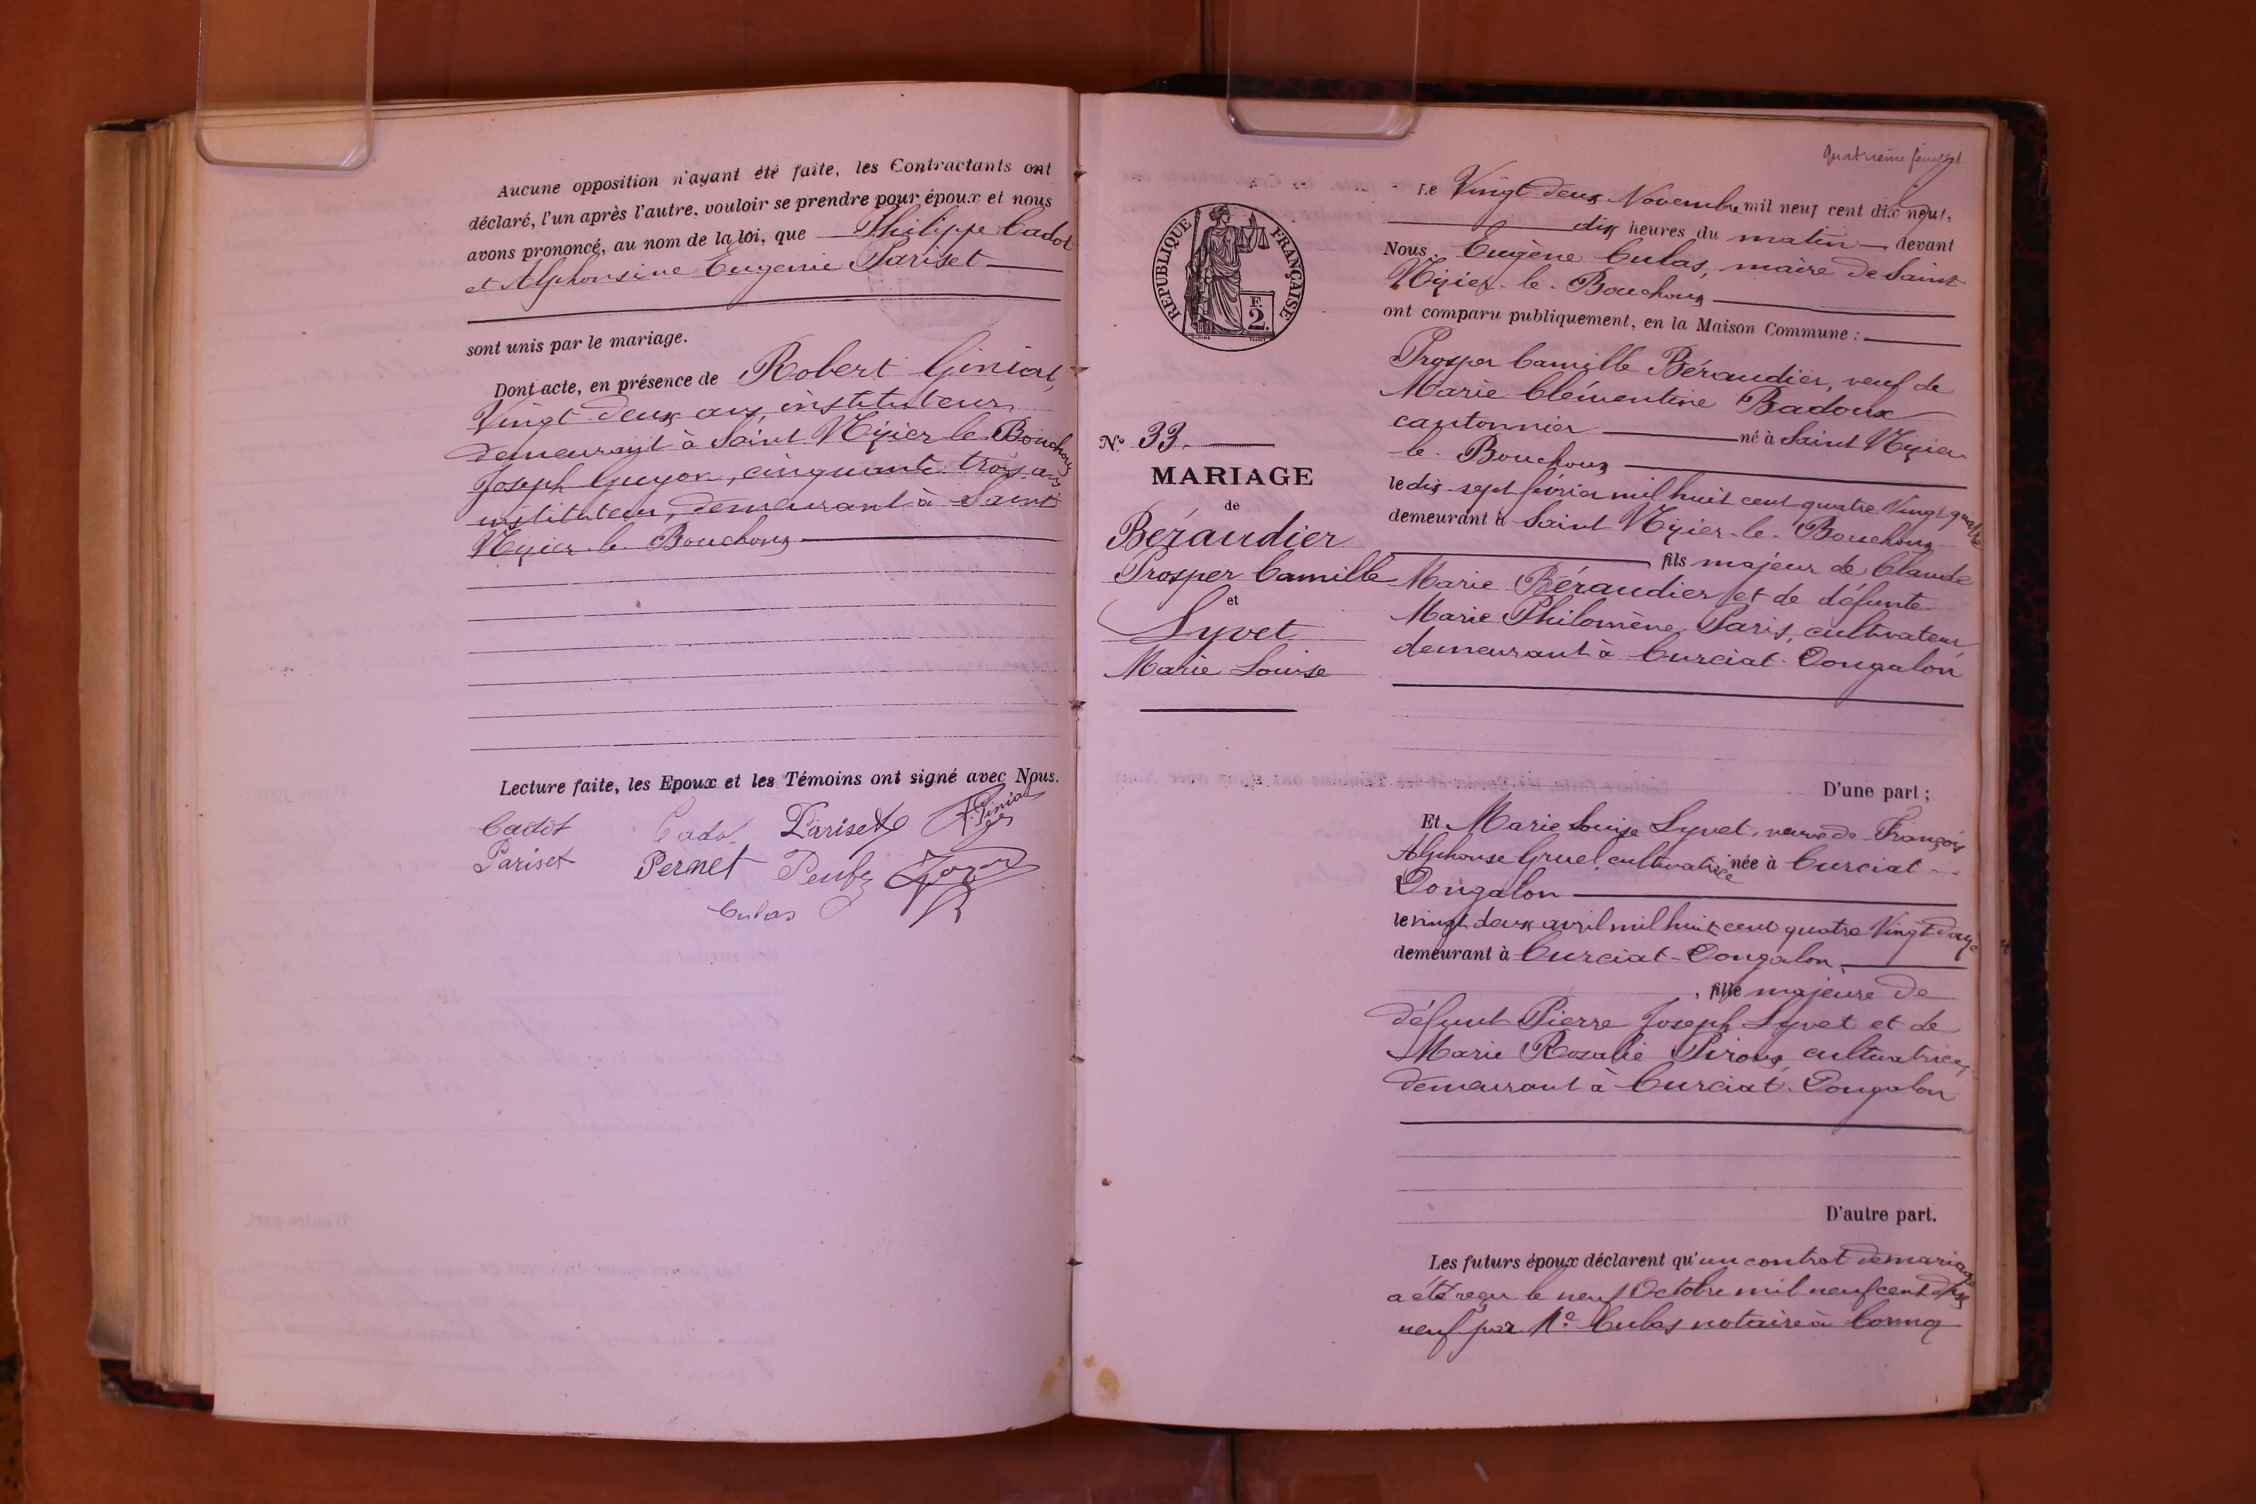 Aucune opposition n'ayant été faite, les Contractants ont
déclaré, l'un après l'autre, vouloir se prendre pour époux et nous
avons prononcé, au nom de la loi, que Philippe Cadot
et Alphonsine Eugenie Pariset
sont unis par le mariage.
Dont acte, en présence de Robert Giniat,
Vingt deux ans, instituteur,
demeurant à Saint Nizier le Bouchoux
Joseph Guyon, cinquante trois ans
instituteur, demeurant à Saint
Nizier le Bouchoux
Lecture faite, les Epoux et les Témoins ont signé avec Nous.
Cadot Cadot Pariset R. Giniat
Pariset Pernet Guyon
Culas
Quatrième feuillet
RÉPUBLIQUE FRANÇAISE
F.
2.
Nº 33.
MARIAGE
de
Béraudier
Prosper Camille
et
Lyvet
Marie Louise
Le Vingt deux Novembre mil neuf cent dix neuf,
dix heures du matin devant
Nous, Eugène Culas, maire de Saint
Nizier-le-Bouchoux
ont comparu publiquement, en la Maison Commune :
Prosper Camille Béraudier, veuf de
Marie Clémentine Badoux
cantonnier né à Saint Nizier
le-Bouchoux
le dix-sept février mil huit cent quatre Vingt quatre
demeurant à Saint Nizier-le-Bouchoux
fils majeur de Claude
Marie Béraudier et de défunte
Marie Philomène Paris, cultivateur,
demeurant à Curciat-Dongalon
D'une part ;
Et Marie Louise Lyvet, veuve de François
Alphonse Gruel, cultivatrice née à Curciat-
Dongalon
le vingt deux avril mil huit cent quatre Vingt douze
demeurant à Curciat-Dongalon,
, fille majeure de
défunt Pierre Joseph Lyvet et de
Marie Rosalie Piroux, cultivatrice,
demeurant à Curciat-Dongalon
D'autre part.
Les futurs époux déclarent qu'un contrat de mariage
a été reçu le neuf Octobre mil neuf cent dix
neuf par Me Culas notaire à Cormoz